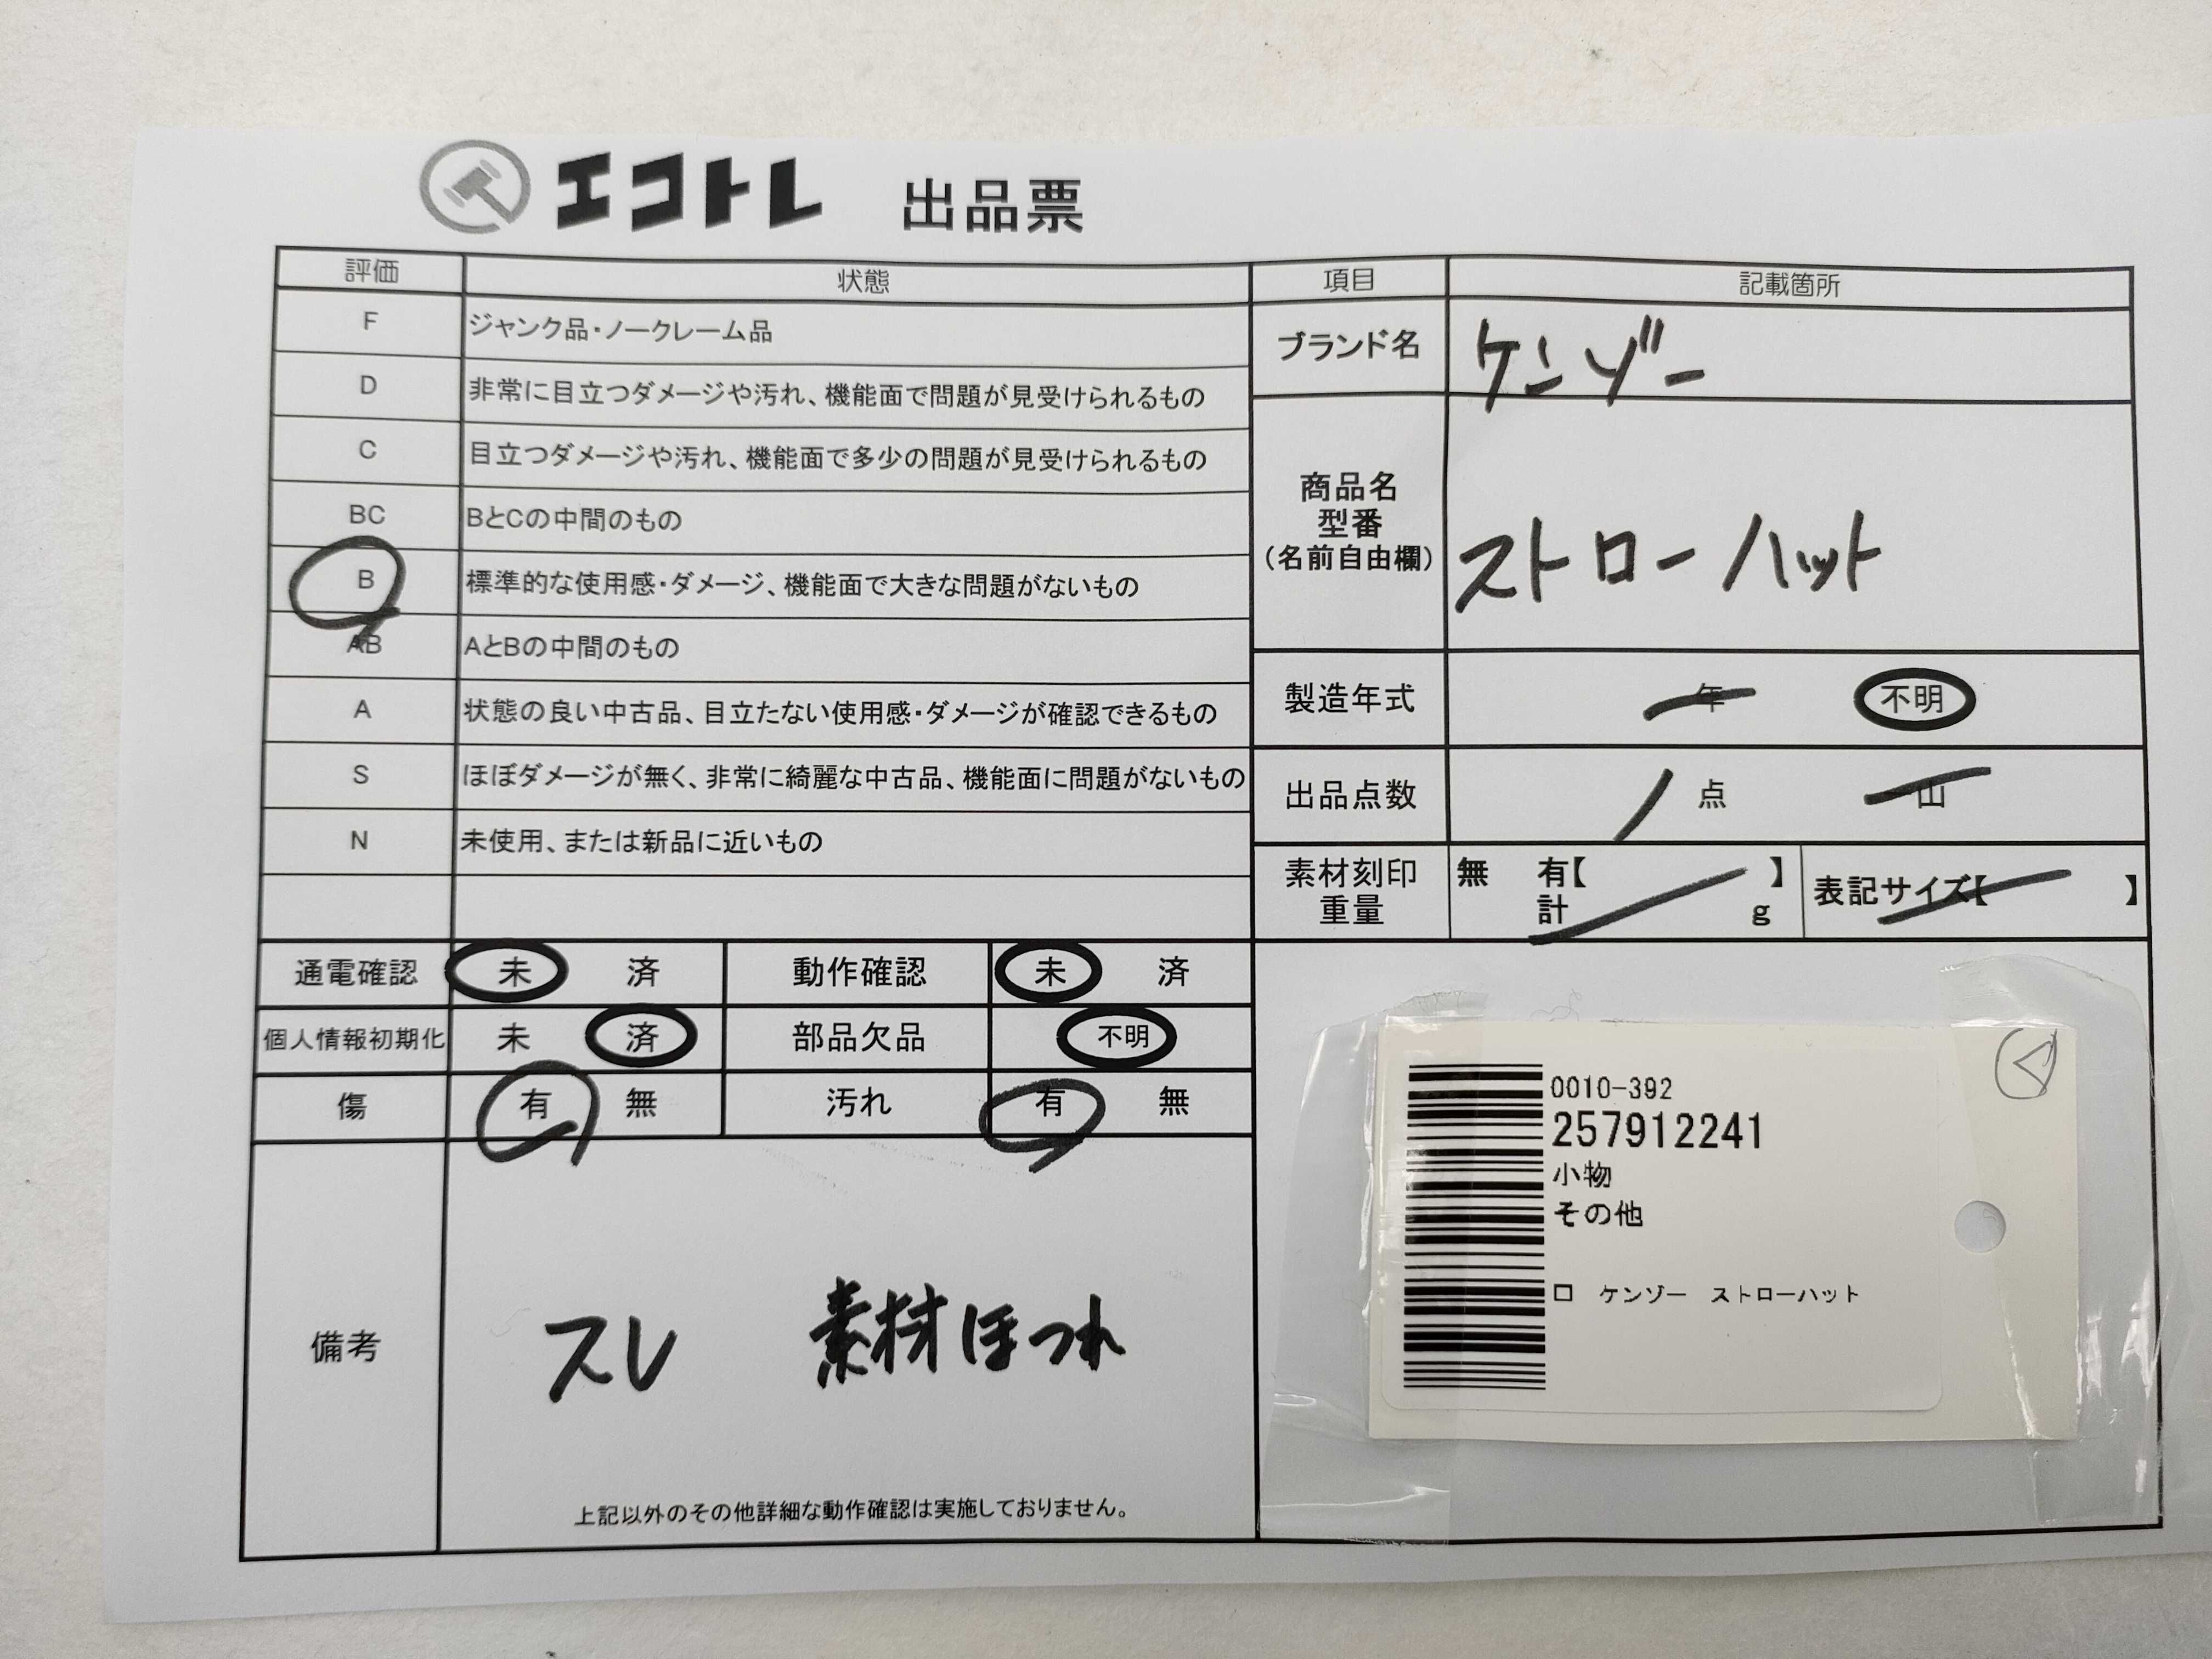 エコトレ 出品票
評価 状態 項目 記載箇所
F ジャンク品・ノークレーム品
D 非常に目立つダメージや汚れ、機能面で問題が見受けられるもの
C 目立つダメージや汚れ、機能面で多少の問題が見受けられるもの
BC BとCの中間のもの
B 標準的な使用感・ダメージ、機能面で大きな問題がないもの
AB AとBの中間のもの
A 状態の良い中古品、目立たない使用感・ダメージが確認できるもの
S ほぼダメージが無く、非常に綺麗な中古品、機能面に問題がないもの
N 未使用、または新品に近いもの
ブランド名 ケンゾー
商品名
型番
(名前自由欄)
ストローハット
製造年式 年 不明
出品点数 1 点 山
素材刻印 無 有【 】
重量 計 g
表記サイズ【 】
通電確認 未 済 動作確認 未 済
個人情報初期化 未 済 部品欠品 不明
傷 有 無 汚れ 有 無
備考 スレ 素材ほつれ
上記以外のその他詳細な動作確認は実施しておりません。
0010-392
257912241
小物
その他
ロ ケンゾー ストローハット